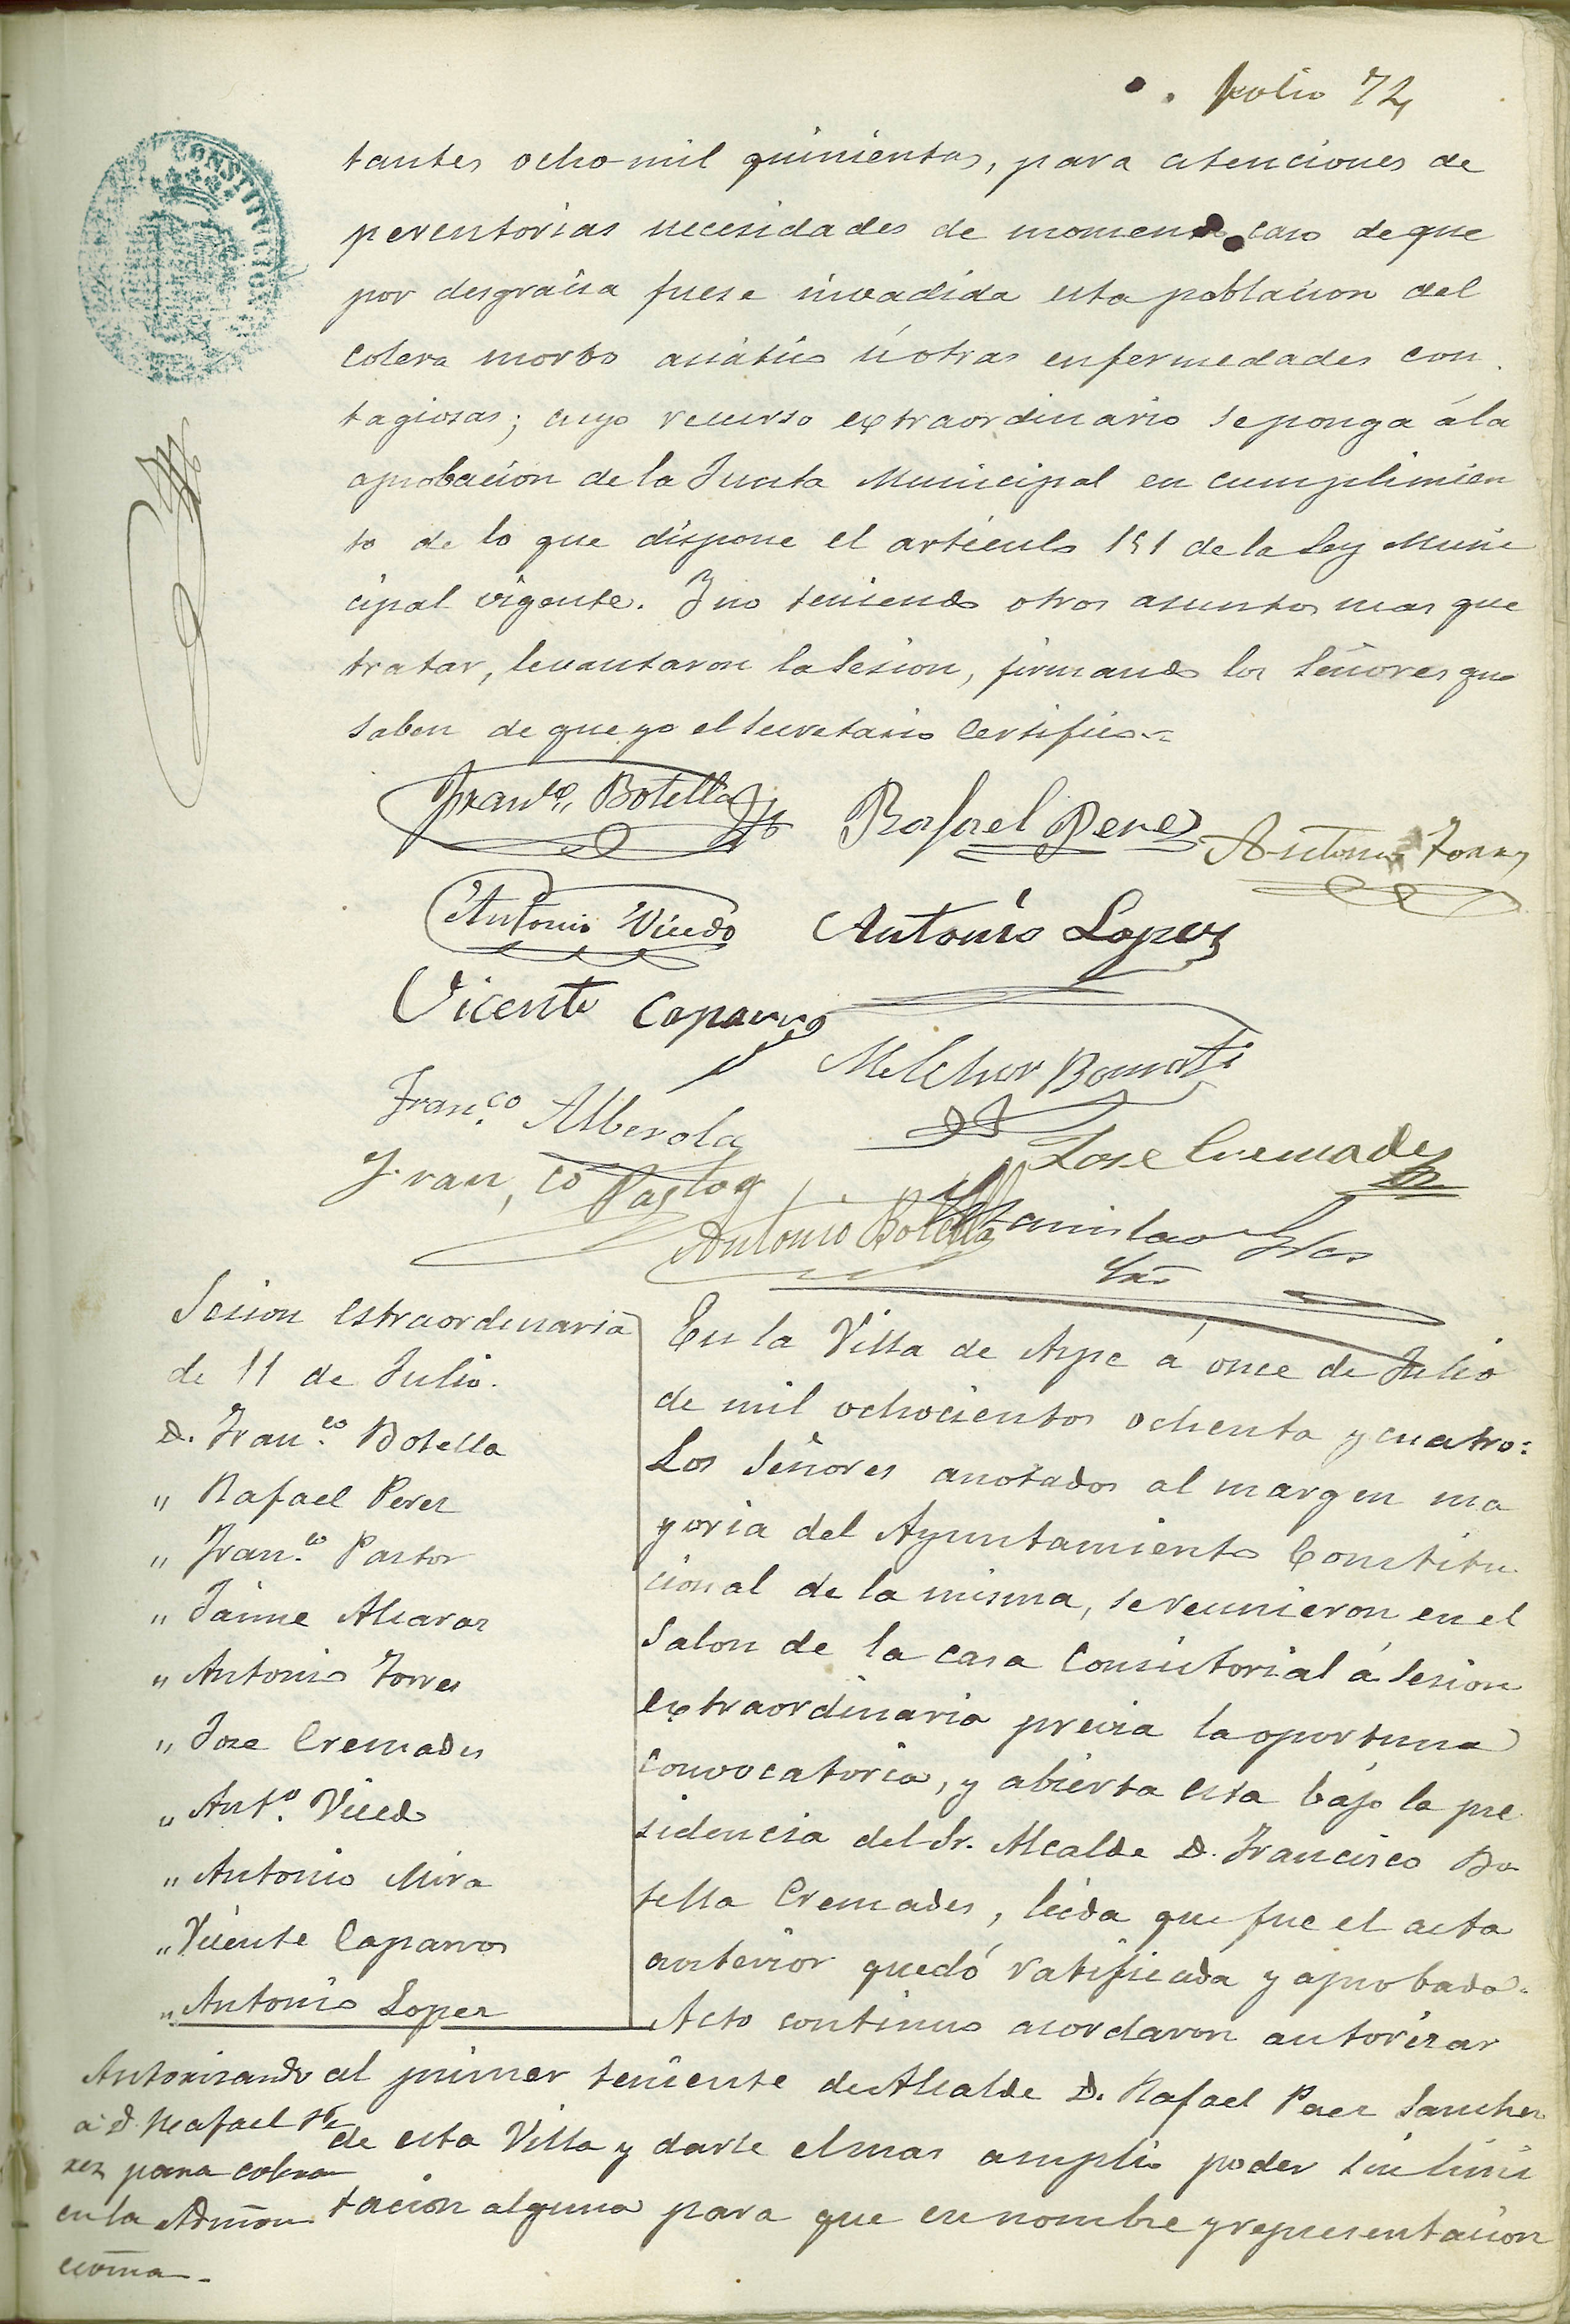 folio 72,
CONSTITUCIONAL
tantes ocho mil quinientas, para atenciones de
perentorias necesidades de momento caso de que
por desgracia fuese invadida esta poblacion del
colera morbo asiatico ú otras enfermedades con
tagiosas; cuyo recurso extraordinario se ponga á la
aprobacion de la Junta Municipal en cumplimien
to de lo que dispone el articulo 151 de la Ley Muni
cipal vigente. Y no teniendo otros asuntos mas que
tratar, levantaron la Sesion, firmando los Señores que
saben de que yo el Secretario Certifico.
Fran.co Botella
Rafael Perez
Antonio Torres
Antonio Vicedo
Antonio Lopez
Vicente Caparros
Melchor Bonmati
Fran.co Alberola
Jose Cremades
Fran,co Pastor
Antonio Botella
Estanislao
Srio
Sesion estraordinaria
de 11 de Julio.
D. Fran.co Botella
" Rafael Perez
" Fran.co Pastor
" Jaime Alcaraz
" Antonio Torres
" Jose Cremades
" Ant.o Vicedo
" Antonio Mira
" Vicente Caparros
" Antonio Lopez
En la Villa de Aspe á once de Julio
de mil ochocientos ochenta y cuatro:
Los Señores anotados al margen ma
yoria del Ayuntamiento Constitu
cional de la misma, se reunieron en el
Salon de la casa Consistorial á sesion
extraordinaria previa la oportuna
convocatoria, y abierta esta bajo la pre
sidencia del Sr. Alcalde D. Francisco Bo
tella Cremades, leida que fue el acta
anterior quedó ratificada y aprobada.
Acto continuo acordaron autorizar
al primer teniente de Alcalde D. Rafael Perez Sanchez
de esta Villa y darle el mas amplio poder sin limi
tacion alguna para que en nombre y representacion
Autorizando
a D. Rafael Pe
rez para cobrar
en la Admon
ecoma.